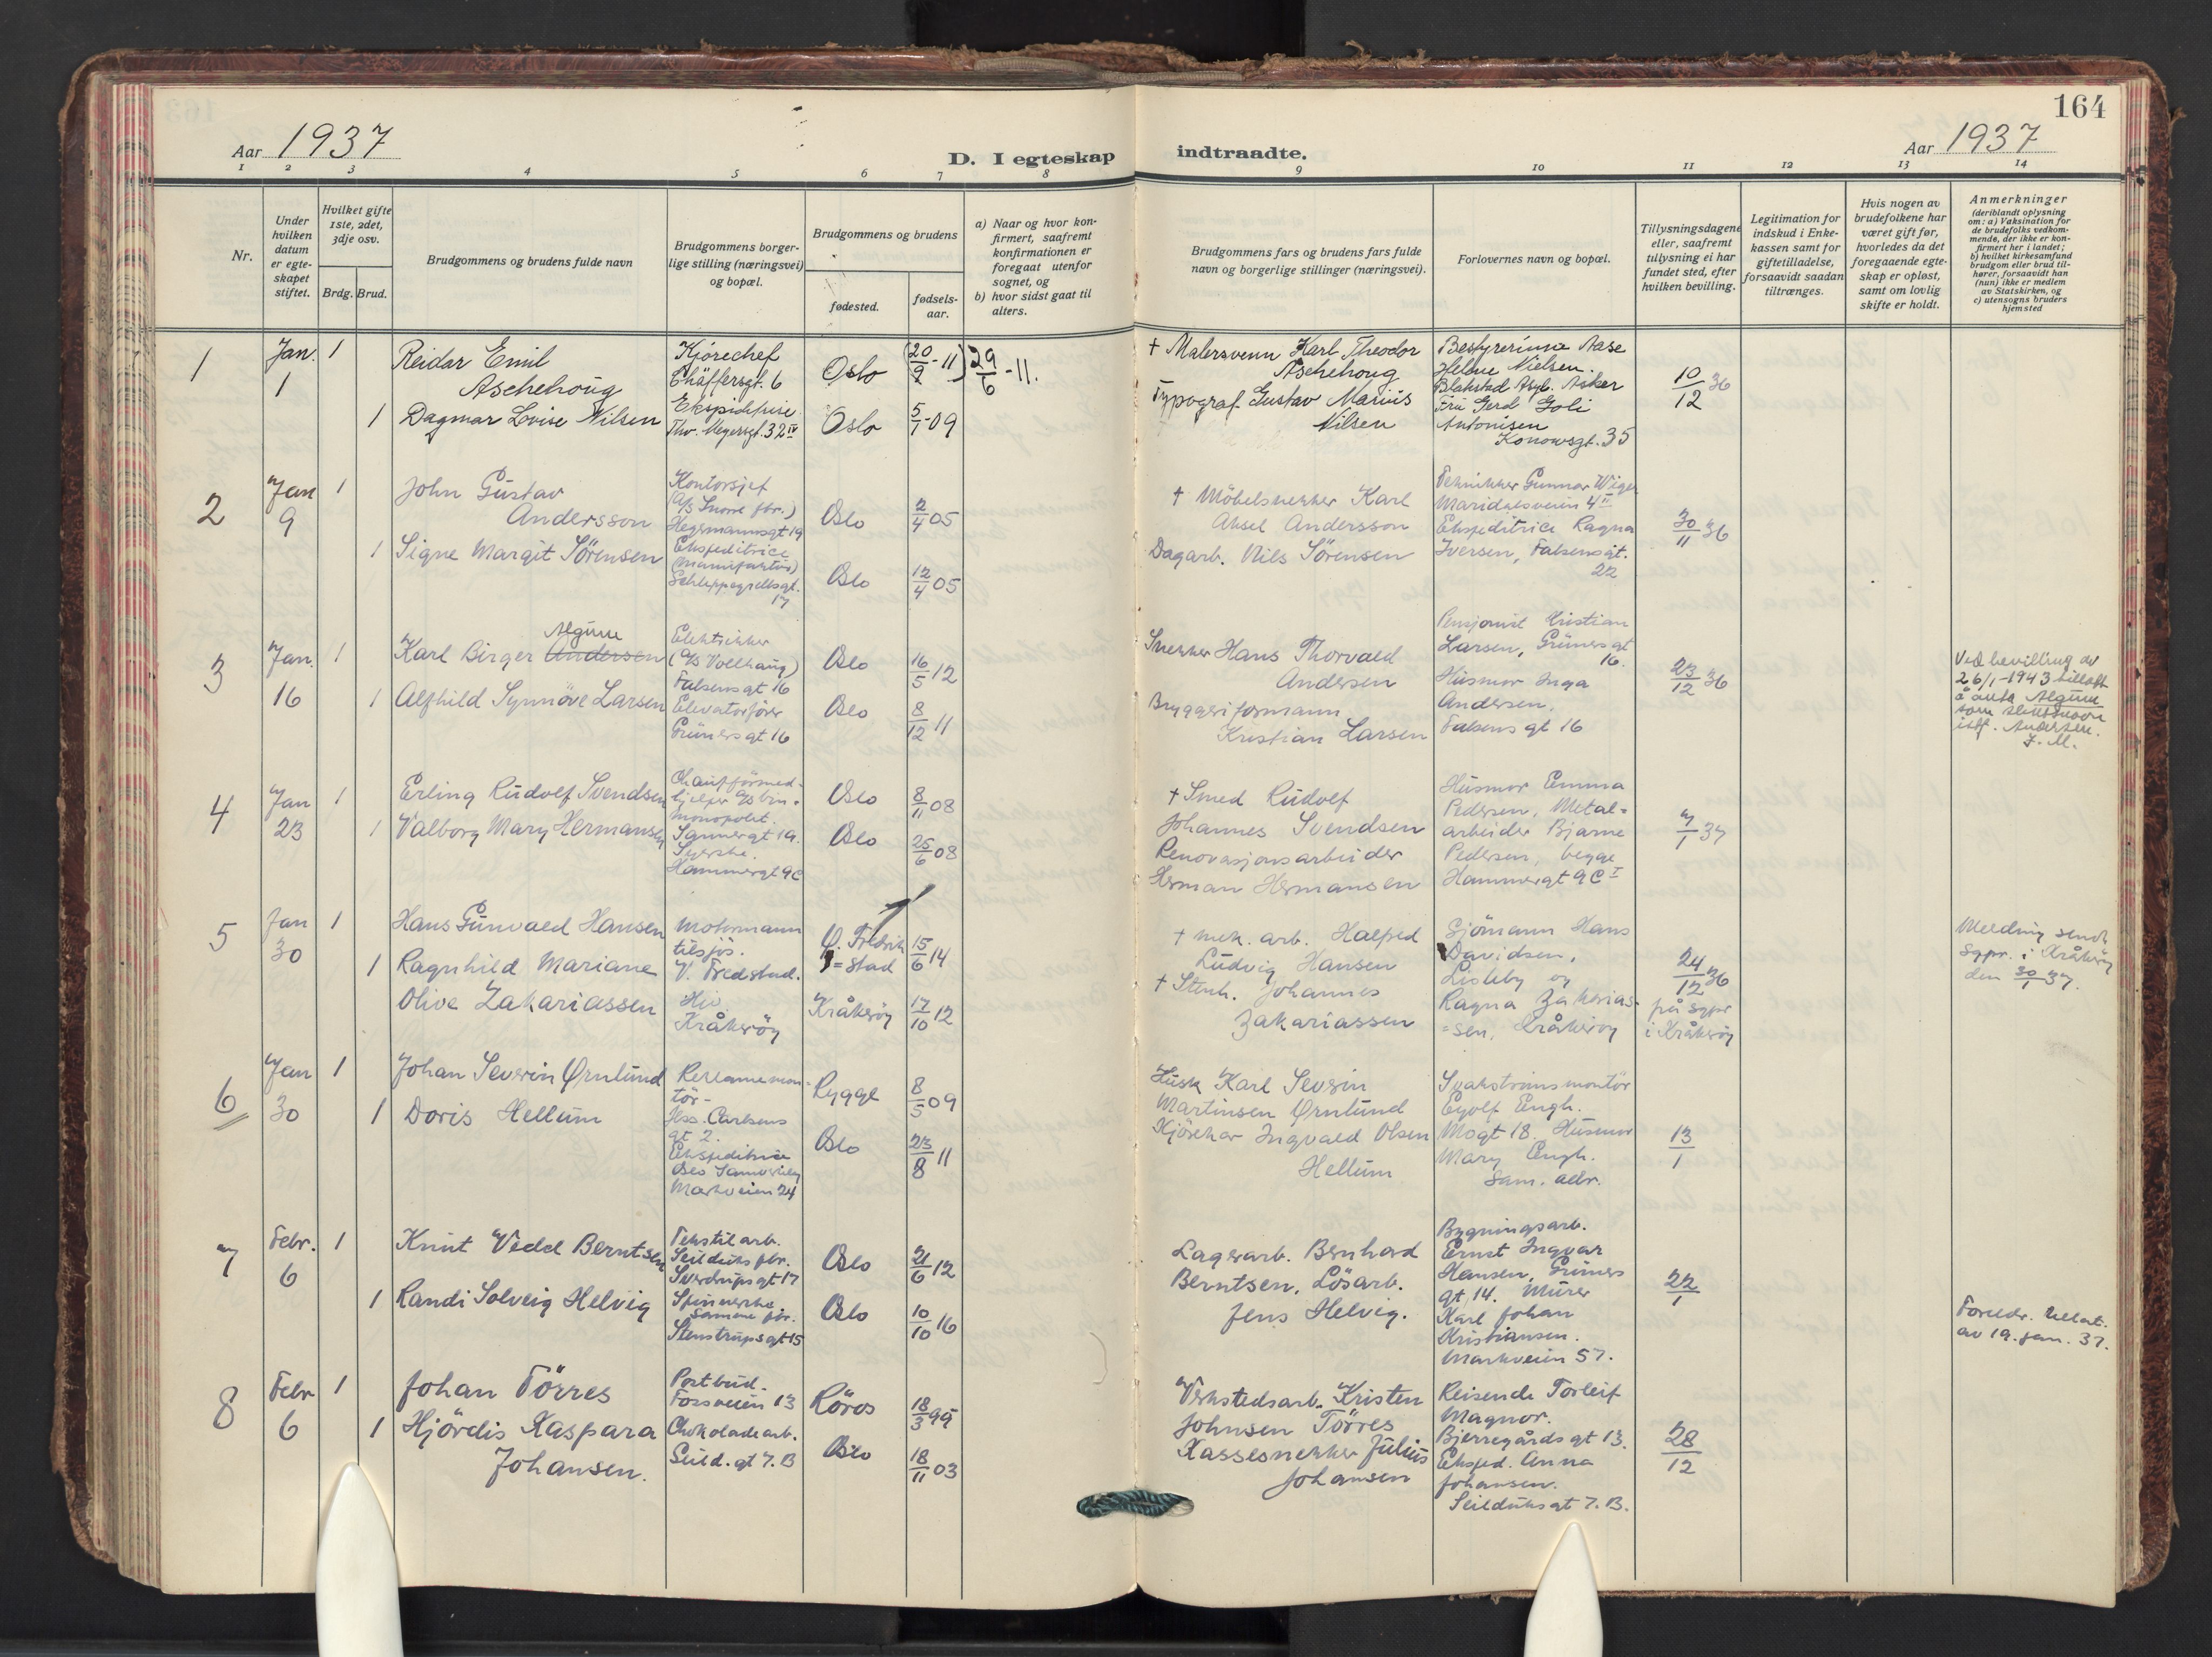 164
Aar 1937
D. I egteskap indtraadte.
Aar 1937
1 2 3 4 5 6 7 8 9 10 11 12 13 14
Nr.
Under hvilken datum er egteskapet stiftet.
Hvilket gifte 1ste, 2det, 3dje osv.
Brdg. Brud.
Brudgommens og brudens fulde navn
Brudgommens borgerlige stilling (næringsvei) og bopæl.
Brudgommens og brudens
fødested.
fødselsaar.
a) Naar og hvor konfirmert, saafremt konfirmationen er foregaat utenfor sognet, og
b) hvor sidst gaat til alters.
Brudgommens fars og brudens fars fulde navn og borgerlige stillinger (næringsvei).
Forlovernes navn og bopæl.
Tillysningsdagene eller, saafremt tillysning ei har fundet sted, efter hvilken bevilling.
Legitimation for indskud i Enkekassen samt for giftetilladelse, forsaavidt saadan tiltrænges.
Hvis nogen av brudefolkene har været gift før, hvorledes da det foregaaende egteskap er opløst, samt om lovlig skifte er holdt.
Anmerkninger
(deriblandt oplysning om: a) Vaksination for de brudefolks vedkommende, der ikke er konfirmert her i landet; b) hvilket kirkesamfund brudgom eller brud tilhører, forsaavidt han (hun) ikke er medlem av Statskirken, og c) utensogns bruders hjemsted
1
Jan. 1
1
Reidar Emil
Aschehoug
Kjørechef
Chäffersgt. 6
Oslo
(20/9-11) 29/6-11.
1
Dagmar Lovise Nilsen
Ekspiditrise
Thv. Meyersgt. 32 IV
Oslo
5/1-09
+ Malersvenn Karl Theodor
Aschehoug
Typograf Gustav Marius
Nilsen
Bestyrerinne Aase
Helene Nielsen.
Blakstad Asyl. Asker
Fru Gerd Goli
Antonisen
Konowsgt. 35
10/12 36
2
Jan 9
1
John Gustav
Andersson
Kontorsjef
(A/S Snorre fbr.)
Hegermannsgt 19
Oslo
2/4 05
1
Signe Margit Sörensen
Ekspeditrice
(Manufaktur)
Schleppegrellsgt.
17
Oslo
12/4 05
+ Möbelsnekker Karl
Aksel Andersson
Dagarb. Nils Sörensen
Tekniker Gunnar Wiger
Maridalsveien 4 II
Ekspeditrice Ragna
Iversen, Falsensgt.
22
30/11 36
3
Jan. 16
1
Algüne
Karl Birger Andersen
Elektrikker
(A/S Vollhaug)
Falsensgt 16
Oslo
16/5 12
1
Alfhild Synnöve Larsen
Elevatorfører
Grünersgt 16
Oslo
8/12 11
Snekker Hans Thorvald
Andersen
Bryggeriformann
Kristian Larsen
Pensjonist Kristian
Larsen, Grünersgt
16.
Husmor Inga
Andersen,
Falsensgt 16
23/12 36
Ved bevilling av
26/1-1943 tillatt
å anta Algüne
som slektsnavn
istf. Andersen.
J. M.
4
Jan 23
1
Erling Rudolf Svendsen
Chaufförmed-
hjelper A/S Vin-
monopolet.
Sannergt 19.
Oslo
8/11 08
1
Valborg Mary Hermansen
Syerske.
Hammergt 9C
Oslo
25/6 08
+ Smed Rudolf
Johannes Svendsen
Renovasjonsarbeider
Herman Hermansen
Husmor Emma
Pedersen, Metal-
arbeider Bjarne
Pedersen, begge
Hammergt 9C I
7/1 37
5
Jan 30
1
Hans Gunvald Hansen
Motormann
tilsjös.
V. Fredstad.
Ø. Fredrik
=stad
15/6 14
1
Ragnhild Mariane
Olive Zakariassen
His
Kråkeröy
Kråkeröy
17/10 12
+ mek. arb. Halfred
Ludvig Hansen
+ Stenh. Johannes
Zakariassen
Sjömann Hans
Davidsen,
Lisleby og
Ragna Zakarias-
=sen, Kråkeröy
24/12 36
på Sgpr
i Kråkeröy
Melding sendt
Sgpr. i Kråkeröy
den 30/1 37.
6
Jan 30
1
Johan Severin Ørnlund
Reklamemon-
tör-
Jess. Carlsens
gt 2.
Rygge
8/5 09
1
Doris Hellum
Ekspeditrice
Oslo Samvirkelag
Markveien 24
Oslo
23/8 11
Husk Karl Severin
Martinsen Ørnlund
Kjörekar Ingvald Olsen
Hellum
Svakströmsmontör
Eyolf Engh.
Mogt 18. Husmor
Mary Engh.
Sam. adr.
13/1
7
Febr. 6
1
Knut Vedel Berntsen
Tekstilarb.
Seilduks fbr.
Sverdrupsgt 17
Oslo
21/6 12
1
Randi Solveig Helvig
Spinnerske
Samme fbr.
Stenstrupsgt 15
Oslo
10/10 16
Lagerarb. Bernhard
Berntsen, Lösarb.
Jens Helvig.
Bygningsarb.
Ernst Ingvar
Hansen, Grüners
gt 14. Murer
Karl Johan
Kristiansen.
Markveien 57.
22/1
Foreldr. tillat.
av 19. jan. 37.
8
Febr 6
1
Johan Törres
Postbud.
Fossveien 13
Röros
18/3 95
1
Hjördis Kaspara
Johansen.
Chokoladearb.
Seild. gt 7. B
Oslo
18/11 03
Verkstedsarb. Kristen
Johnsen Törres
Kassesnekker Julius
Johansen
Reisende Torleif
Magnor.
Bjerregårdsgt 13.
Eksped. Anna
Johansen.
Seilduksgt 7. B.
28/12